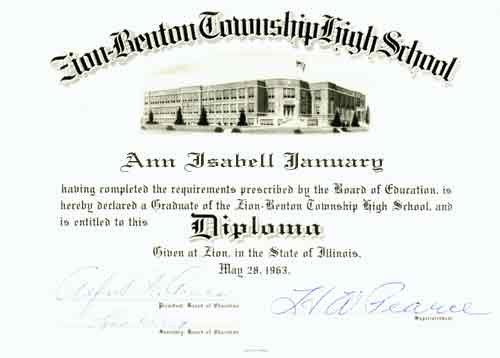 Zion-Benton Township High School
Ann Isabell January
having completed the requirements prescribed by the Board of Education, is
hereby declared a Graduate of the Zion-Benton Township High School, and
is entitled to this Diploma
Given at Zion, in the State of Illinois,
May 28, 1963.
President Board of Education
H W Pearce
Superintendent
Secretary Board of Education